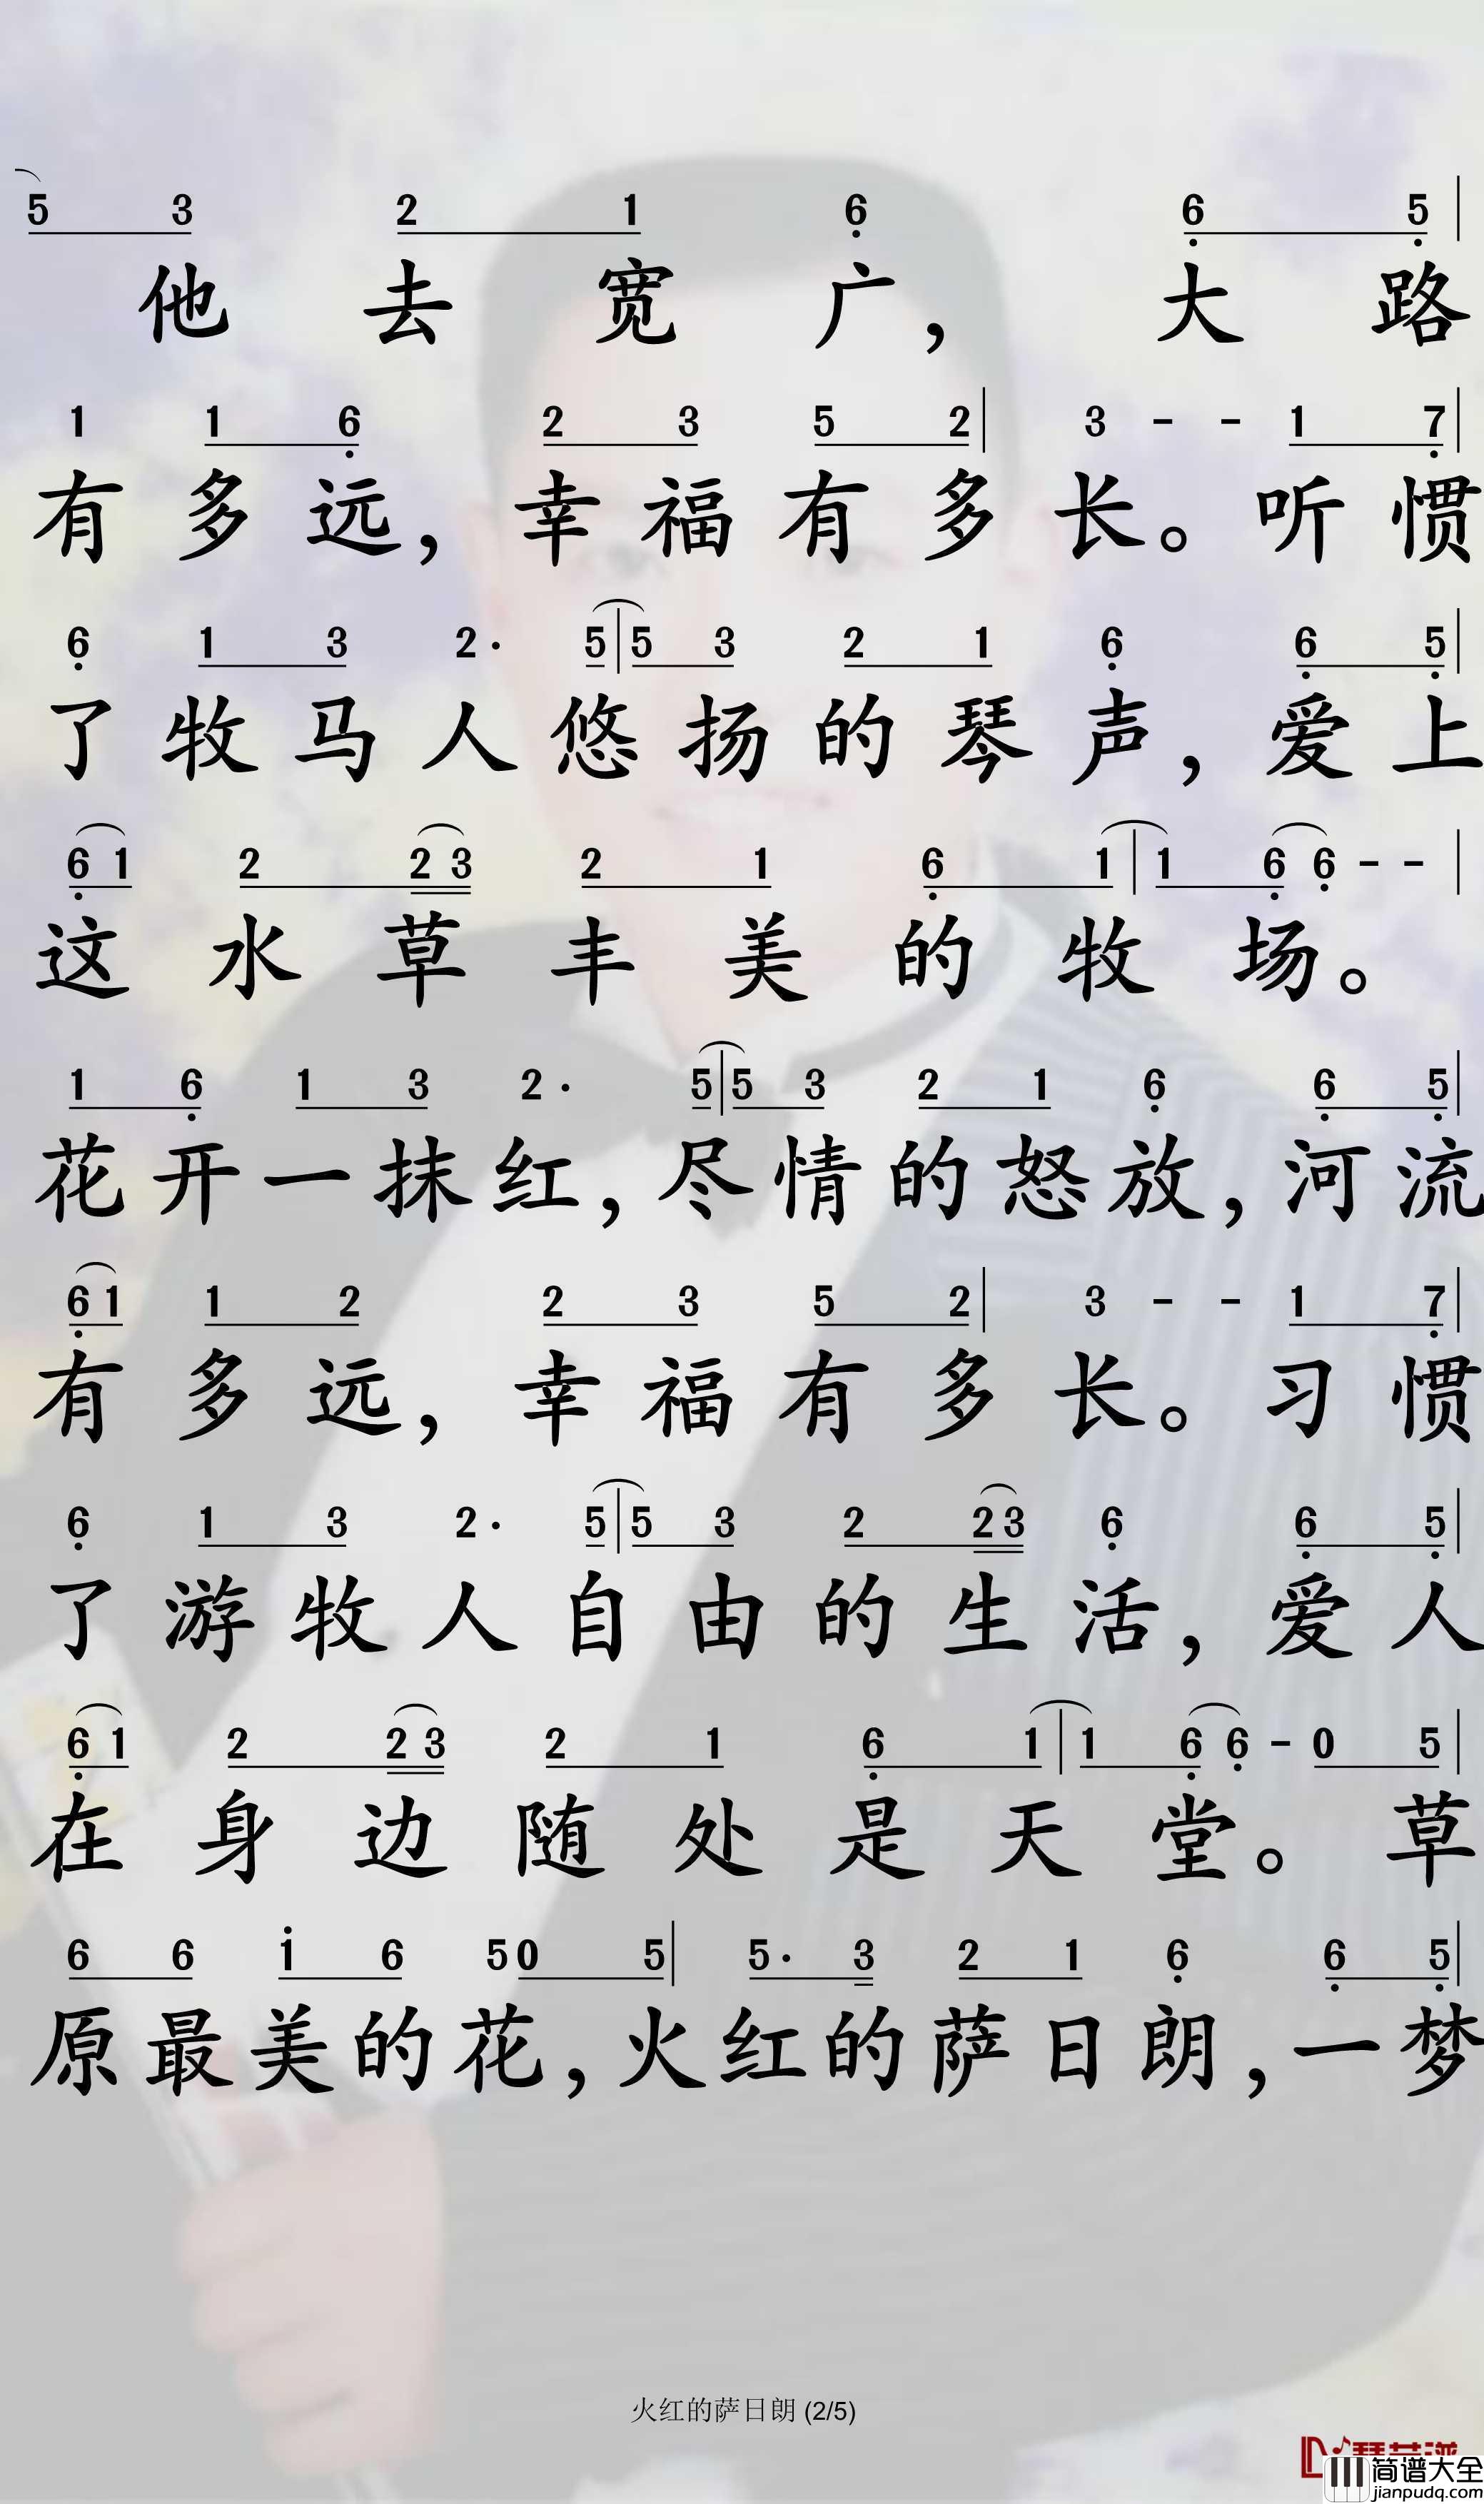 5 3 2 1 6 6 5
他去宽广，大路
1 1 6 2 3 5 2 3 - - 1 7
有多远，幸福有多长。听惯
6 1 3 2· 5 5 3 2 1 6 6 5
了牧马人悠扬的琴声，爱上
6 1 2 2 3 2 1 6 1 1 6 6 - -
这水草丰美的牧场。
1 6 1 3 2· 5 5 3 2 1 6 6 5
花开一抹红，尽情的怒放，河流
6 1 1 2 2 3 5 2 3 - - 1 7
有多远，幸福有多长。习惯
6 1 3 2· 5 5 3 2 2 3 6 6 5
了游牧人自由的生活，爱人
6 1 2 2 3 2 1 6 1 1 6 6 - 0 5
在身边随处是天堂。草
6 6 1 6 5 0 5 5· 3 2 1 6 6 5
原最美的花，火红的萨日朗，一梦
火红的萨日朗 (2/5)
简谱大全
jianpudq.com